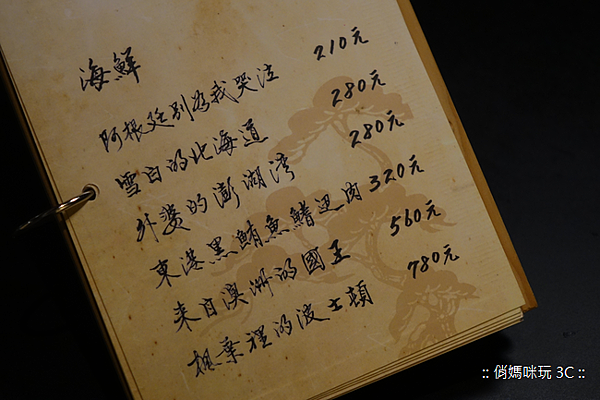 海鮮
阿根廷別為我哭泣 210元
雪白的北海道 280元
外婆的澎湖灣 280元
東港黑鮪魚鰭邊肉 320元
來自澳洲的國王 560元
楓葉裡的波士頓 780元
:: 俏媽咪玩 3C ::